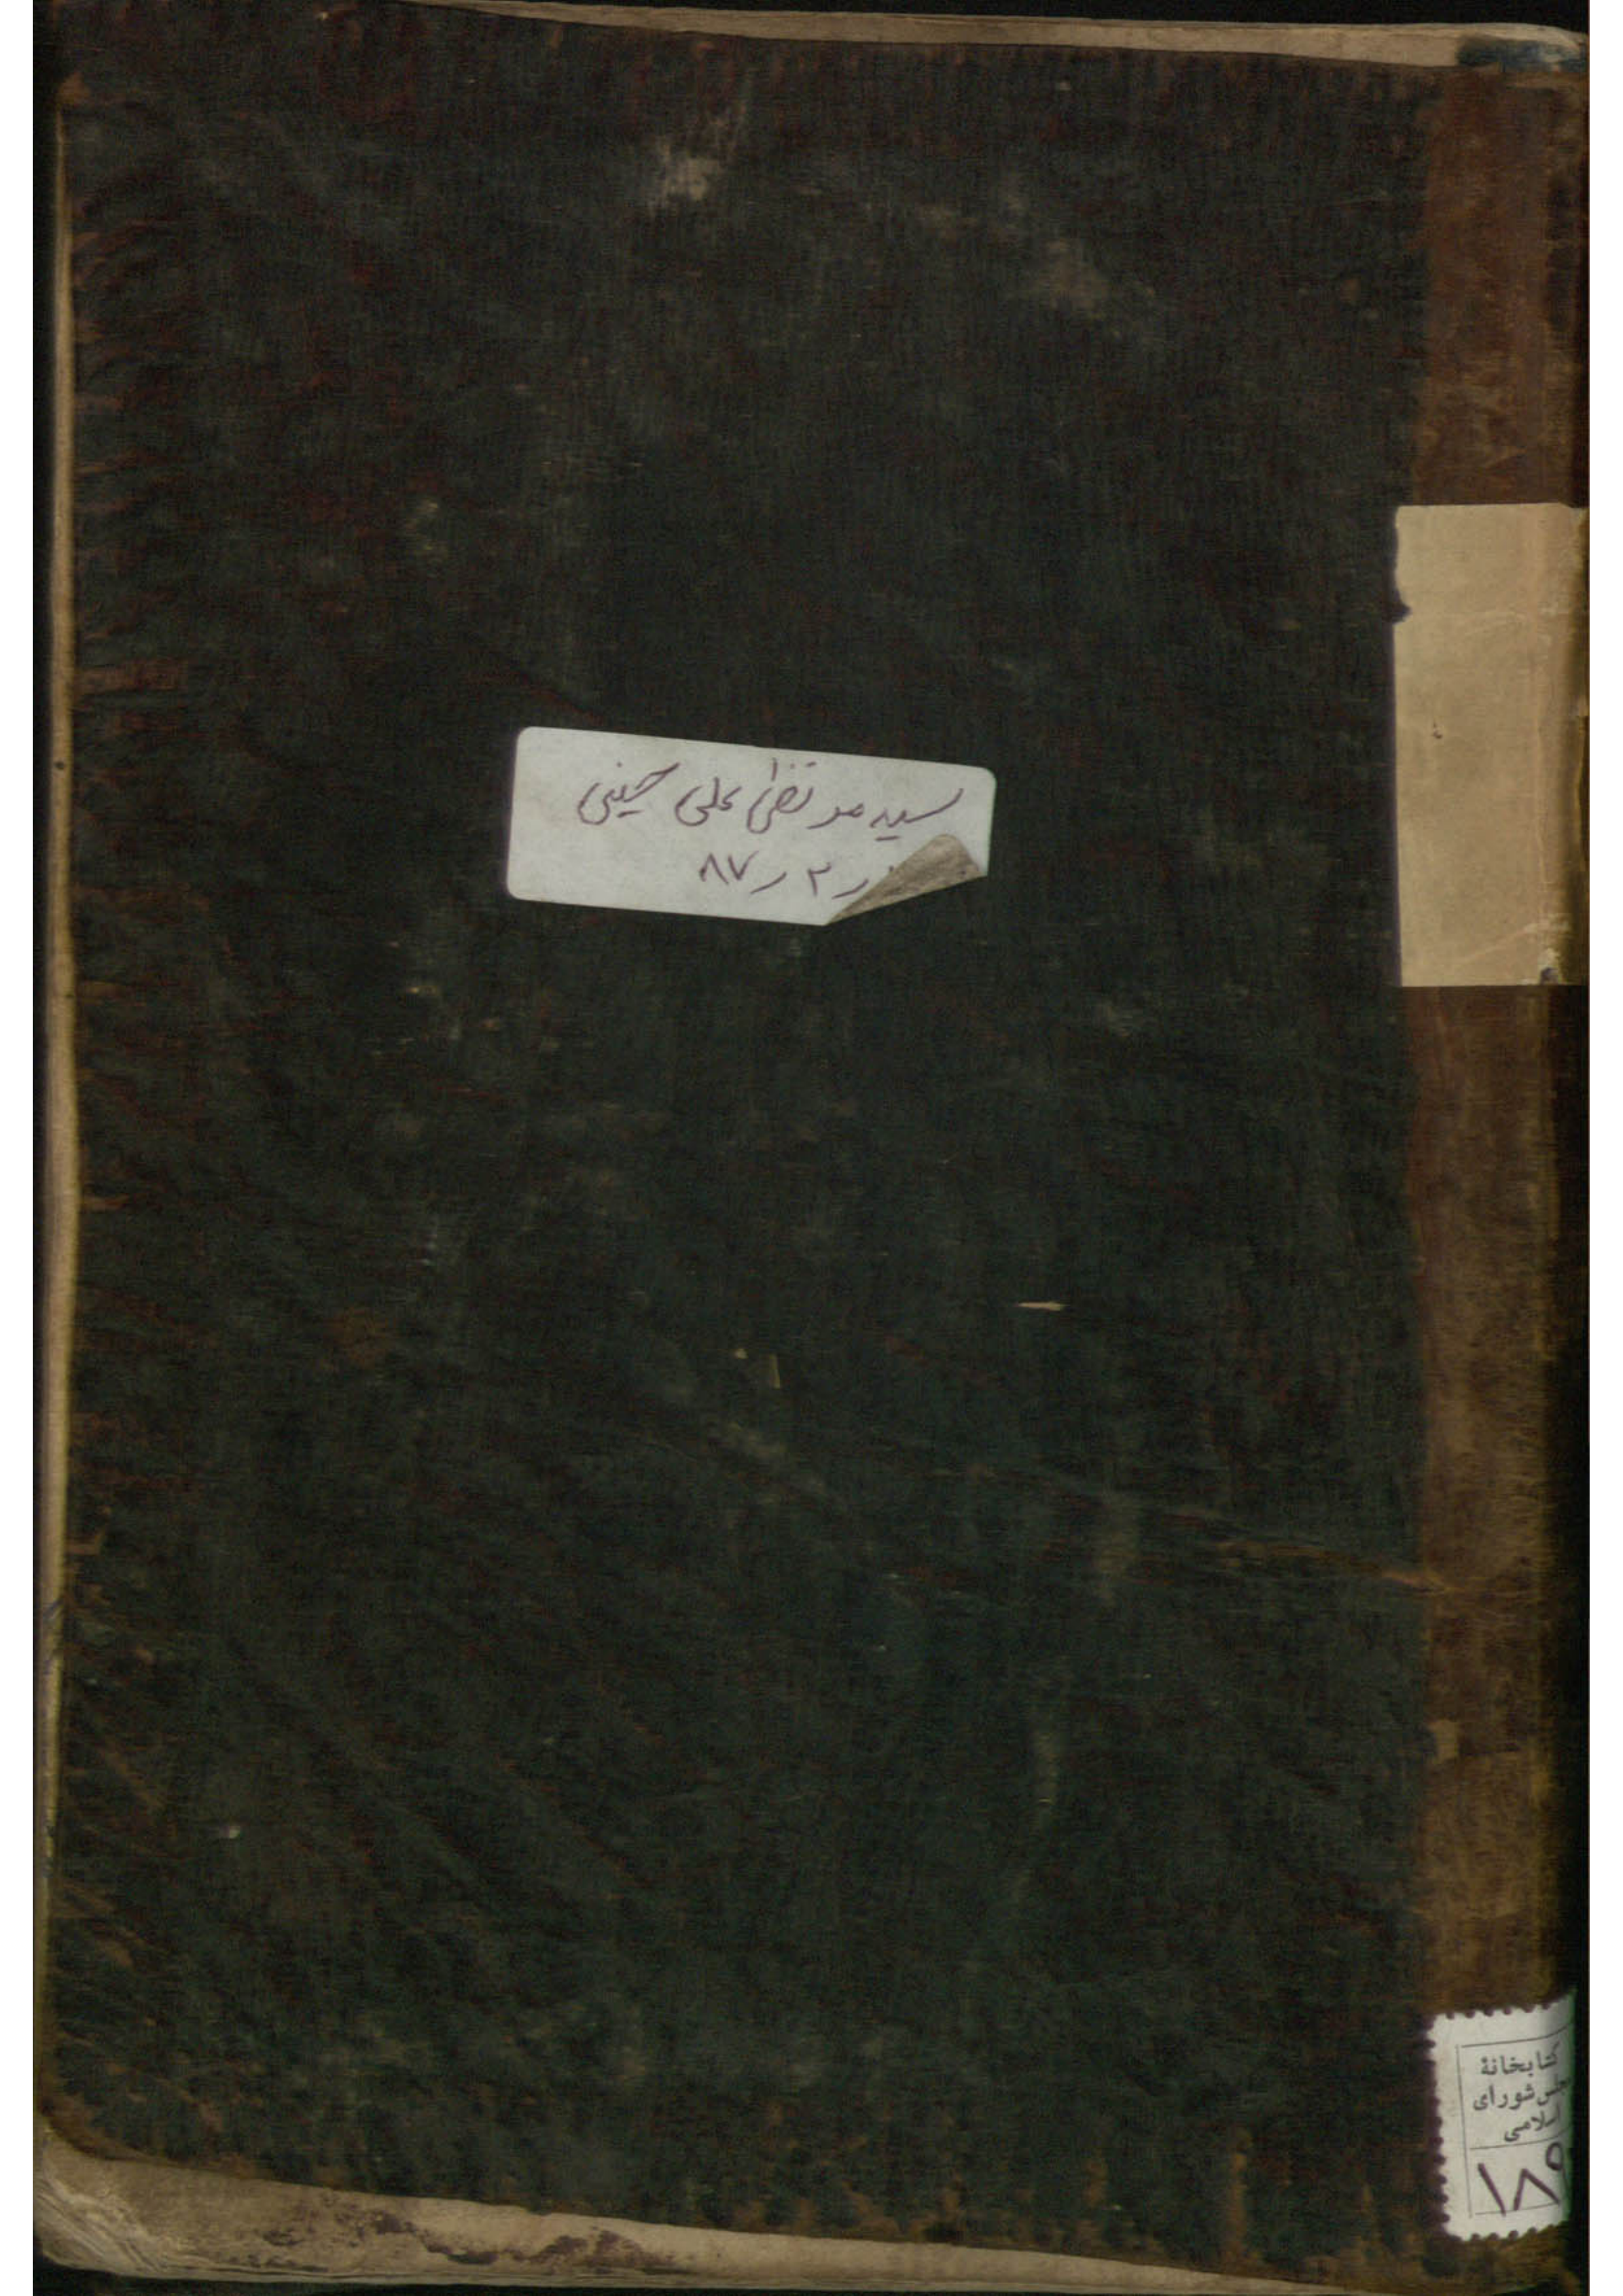 سید مرتضی علی حسینی
ر ۲ ر ۸۷
کتابخانهٔ
مجلس شورای
اسلامی
۱۸